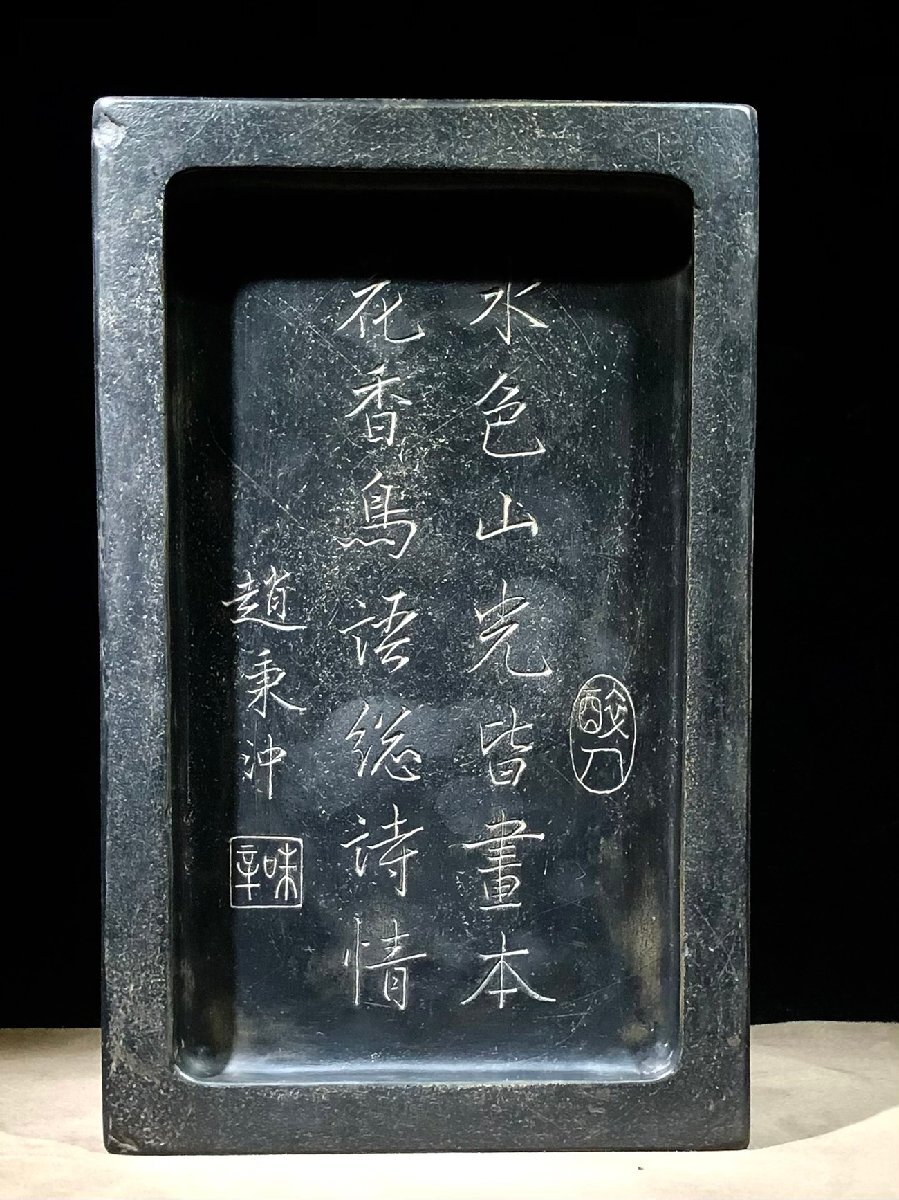 水色山光皆畫本
花香鳥語総詩情
趙秉沖
味辛